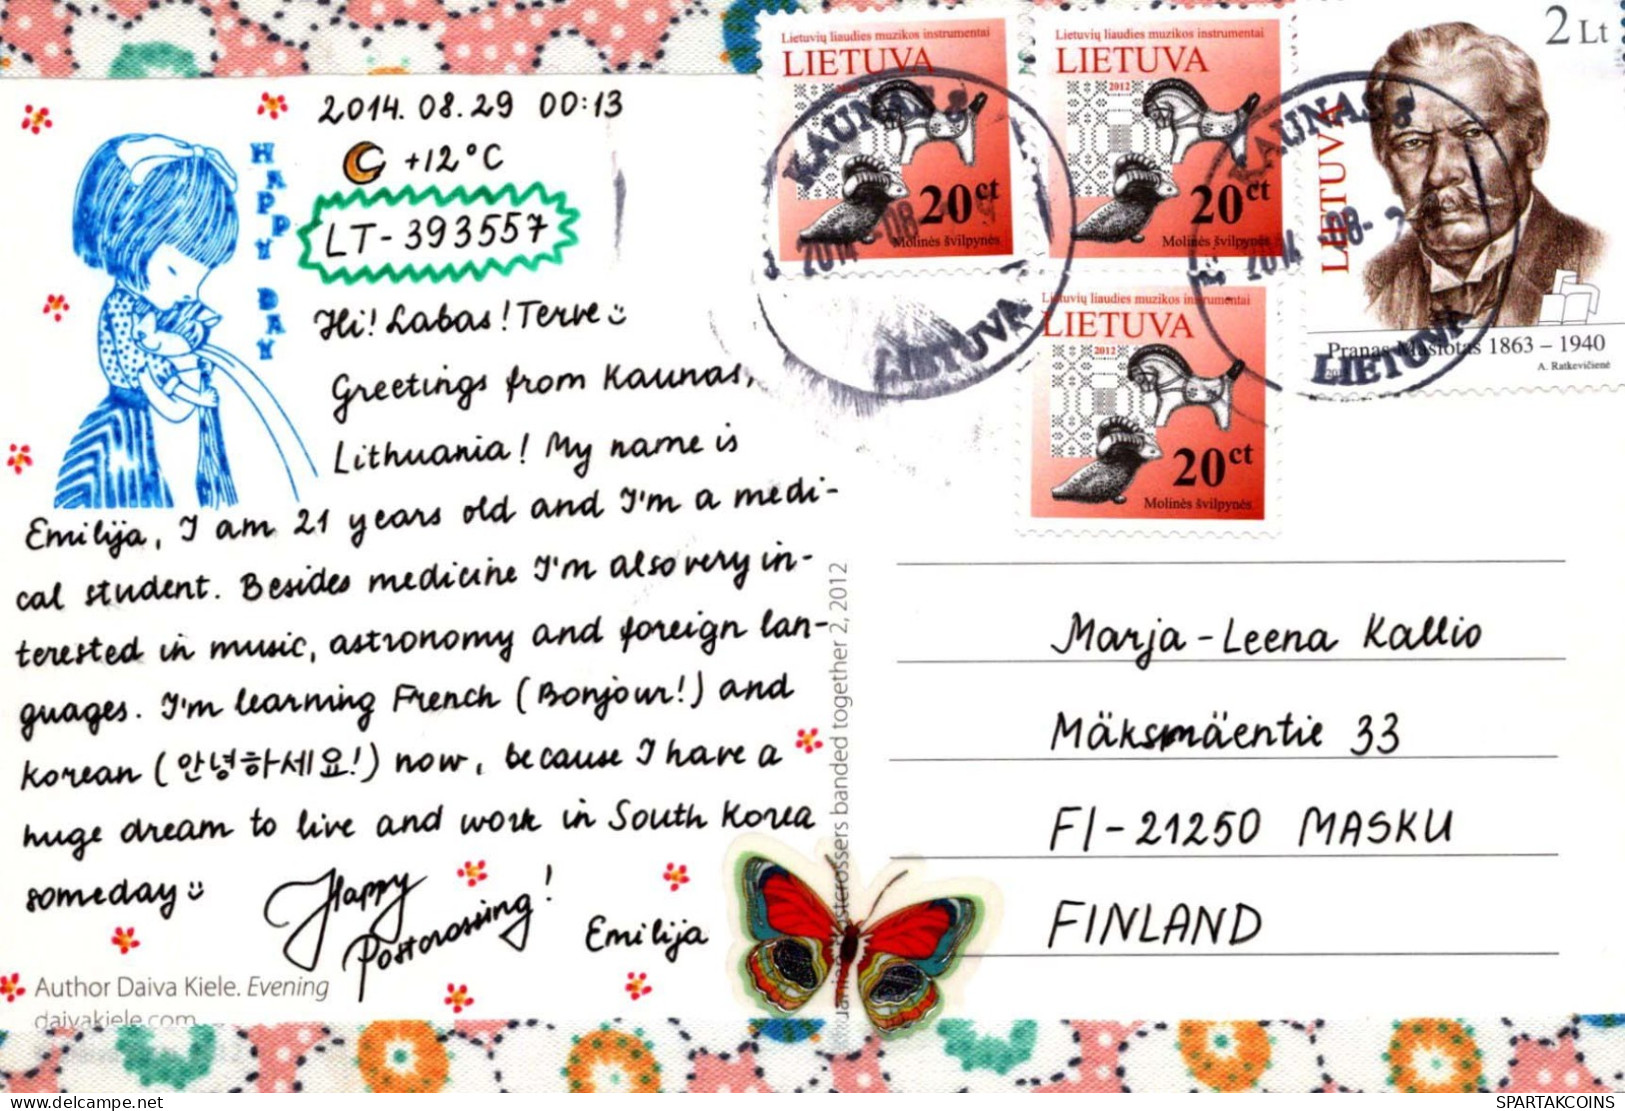 2014.08.29 00:13
+12°C
LT-393557
HAPPY DAY
Hi! Labas! Terve
Greetings from Kaunas,
Lithuania! My name is
Emilija, I am 21 years old and I'm a medi-
cal student. Besides medicine I'm also very in-
terested in music, astronomy and foreign lan-
guages. I'm learning French (Bonjour!) and
Korean (안녕하세요!) now, because I have a
huge dream to live and work in South Korea
someday
Happy
Postcrossing!
Emilija
Author Daiva Kiele. Evening
daivakiele.com
Lithuanian postcrossers banded together 2, 2012
Lietuvių liaudies muzikos instrumentai
LIETUVA
20ct
Molinės švilpynės
Lietuvių liaudies muzikos instrumentai
LIETUVA
2012
20ct
Molinės švilpynės
Lietuvių liaudies muzikos instrumentai
LIETUVA
2012
20ct
Molinės švilpynės
2 Lt
LIETUVA
Pranas Mašiotas 1863 – 1940
A. Ratkevičienė
KAUNAS 8
2014 -08-
LIETUVA
KAUNAS 8
2014 -08-
LIETUVA
Marja-Leena Kallio
Mäksmäentie 33
FI-21250 MASKU
FINLAND
delcampe.net
SPARTAKCOINS